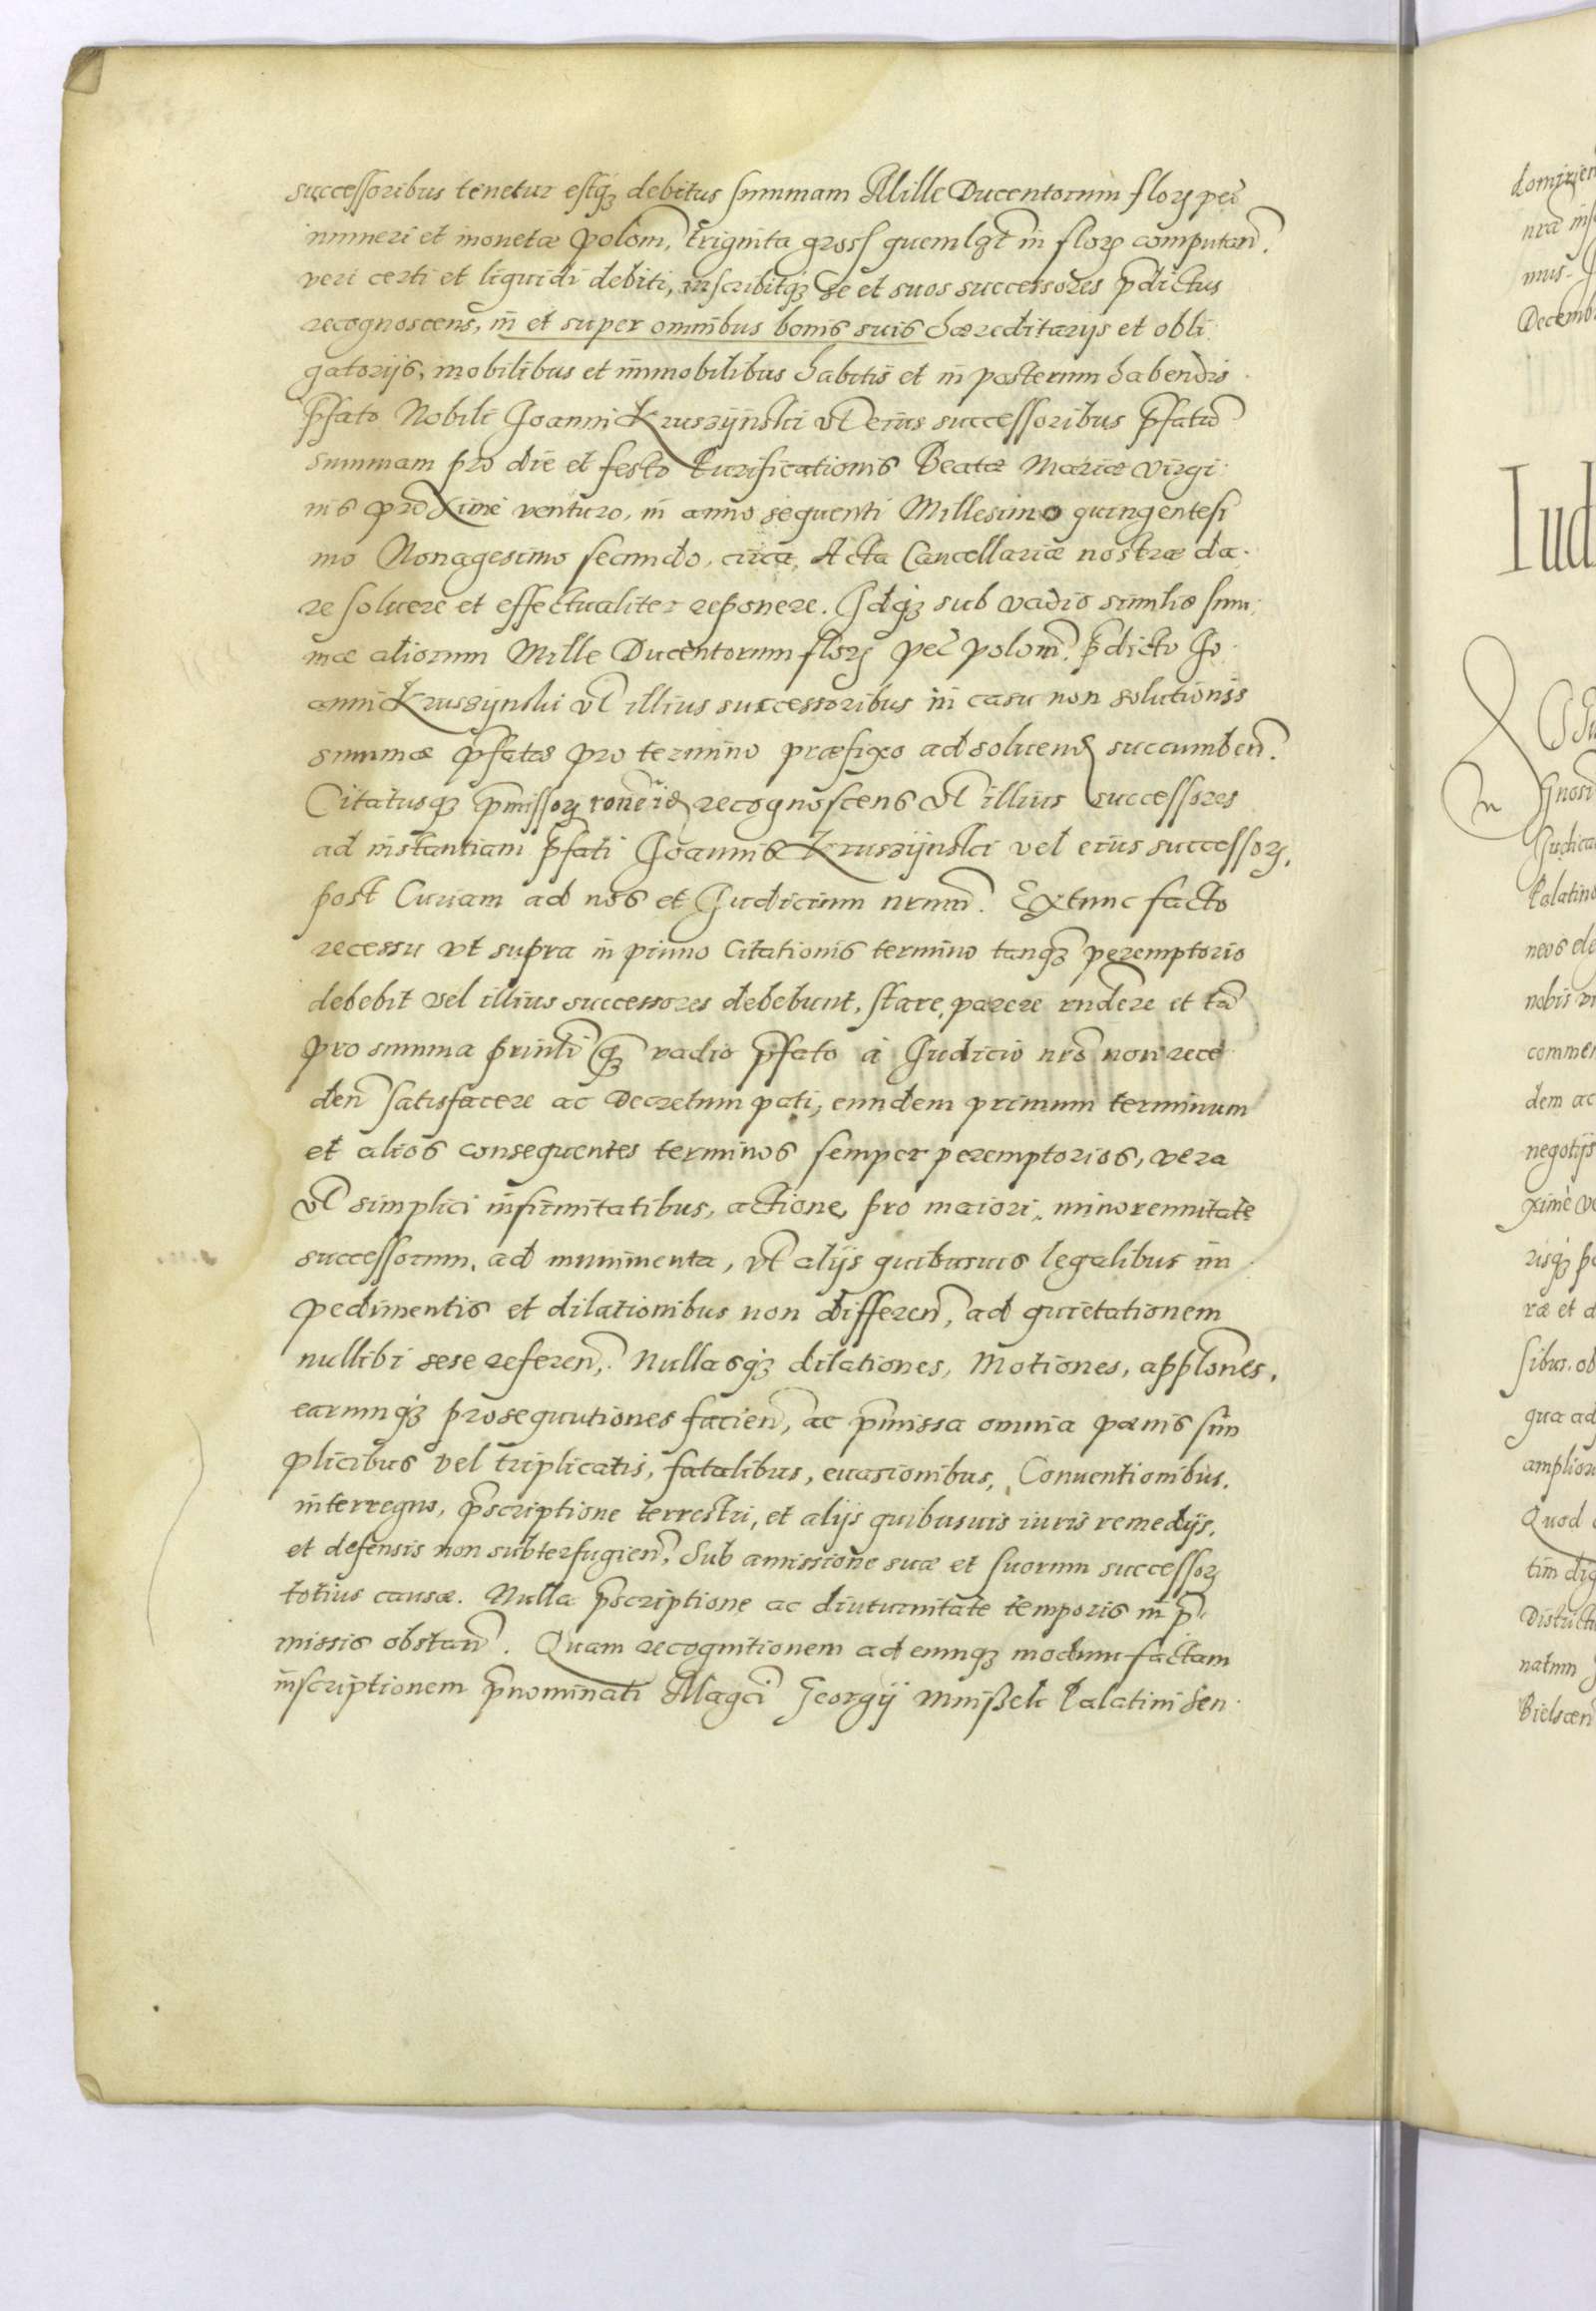 successoribus tenetur estq₃ debitus summam Mille Ducentorum floꝝ pec̃
numeri et monetæ polon̄, triginta gross quemlꝫt in floꝝ computan̄.
veri certi et liquidi debiti, inscribitq₃ se et suos successores p̄dictus
recognoscens, in et super omnibus bonis suis hæreditarijs et obli
gatorijs, mobilibus et immobilibus habitis et in posterum habendis.
p̄fato Nobili Joanni Kruszÿnski vl̄ eius successoribus p̄fatā
summam pro die et festo Purificationis Beatæ Mariæ Virgi
nis proxime venturo, in anno sequenti Millesimo quingentesi
mo Nonagesimo secundo, circa Acta Cancellariæ nostræ da
re soluere et effectualiter reponere. Jdq₃ sub vadio similis sum
mæ aliorum Mille Ducentorum floꝝ pec̃ polon̄. p̄dicto Jo
anni Kruszÿnski vl̄ illius successoribus in casu non solutionis
summæ p̄fatæ pro termino præfixo ad soluend̄ succumben̄.
Citatusq₃ p̄missoꝝ rōne id̄ recognoscens vl̄ illius successores
ad instantiam p̄fati Joannis Kruszÿnski vel eius successoꝝ,
post Curiam ad nos et Judicium nrum̄. Extunc facto
recessu vt supra in primo Citationis termino tanq₃ peremptorio
debebit vel illius successores debebunt, stare, parere rndere et tā
pro summa prinli q̄₃ vadio p̄fato à Judicio nrō non rece
den̄ satisfacere ac Decretum pati, eundem primum terminum
et alios consequentes terminos semper peremptorios, vera
vl̄ simplici infirmitatibus, actione, pro maiori, minorennitate
successorum, ad munimenta, vl̄ alijs quibusuis legalibus im
pedimentis et dilationibus non differen̄, ad quietationem
nullibi sese referen̄, Nullasq₃ dilationes, Motiones, applōnes,
earumq₃ prosequutiones facien̄, ac p̄missa omnia pœnis sim
plicibus vel triplicatis, fatalibus, euasionibus, Conuentionibus,
interregno, p̄scriptione terrestri, et alijs quibusuis iuris remedijs,
et defensis non subterfugien̄, Sub amissione suæ et suorum successoꝝ
totius causæ. Nulla p̄scriptione ac diuturnitate temporis in p̄
missis obstan̄. Quam recognitionem ad eumq₃ modum factam
inscriptionem p̄nominati Magci Georgij Mnißek Palatini Sen